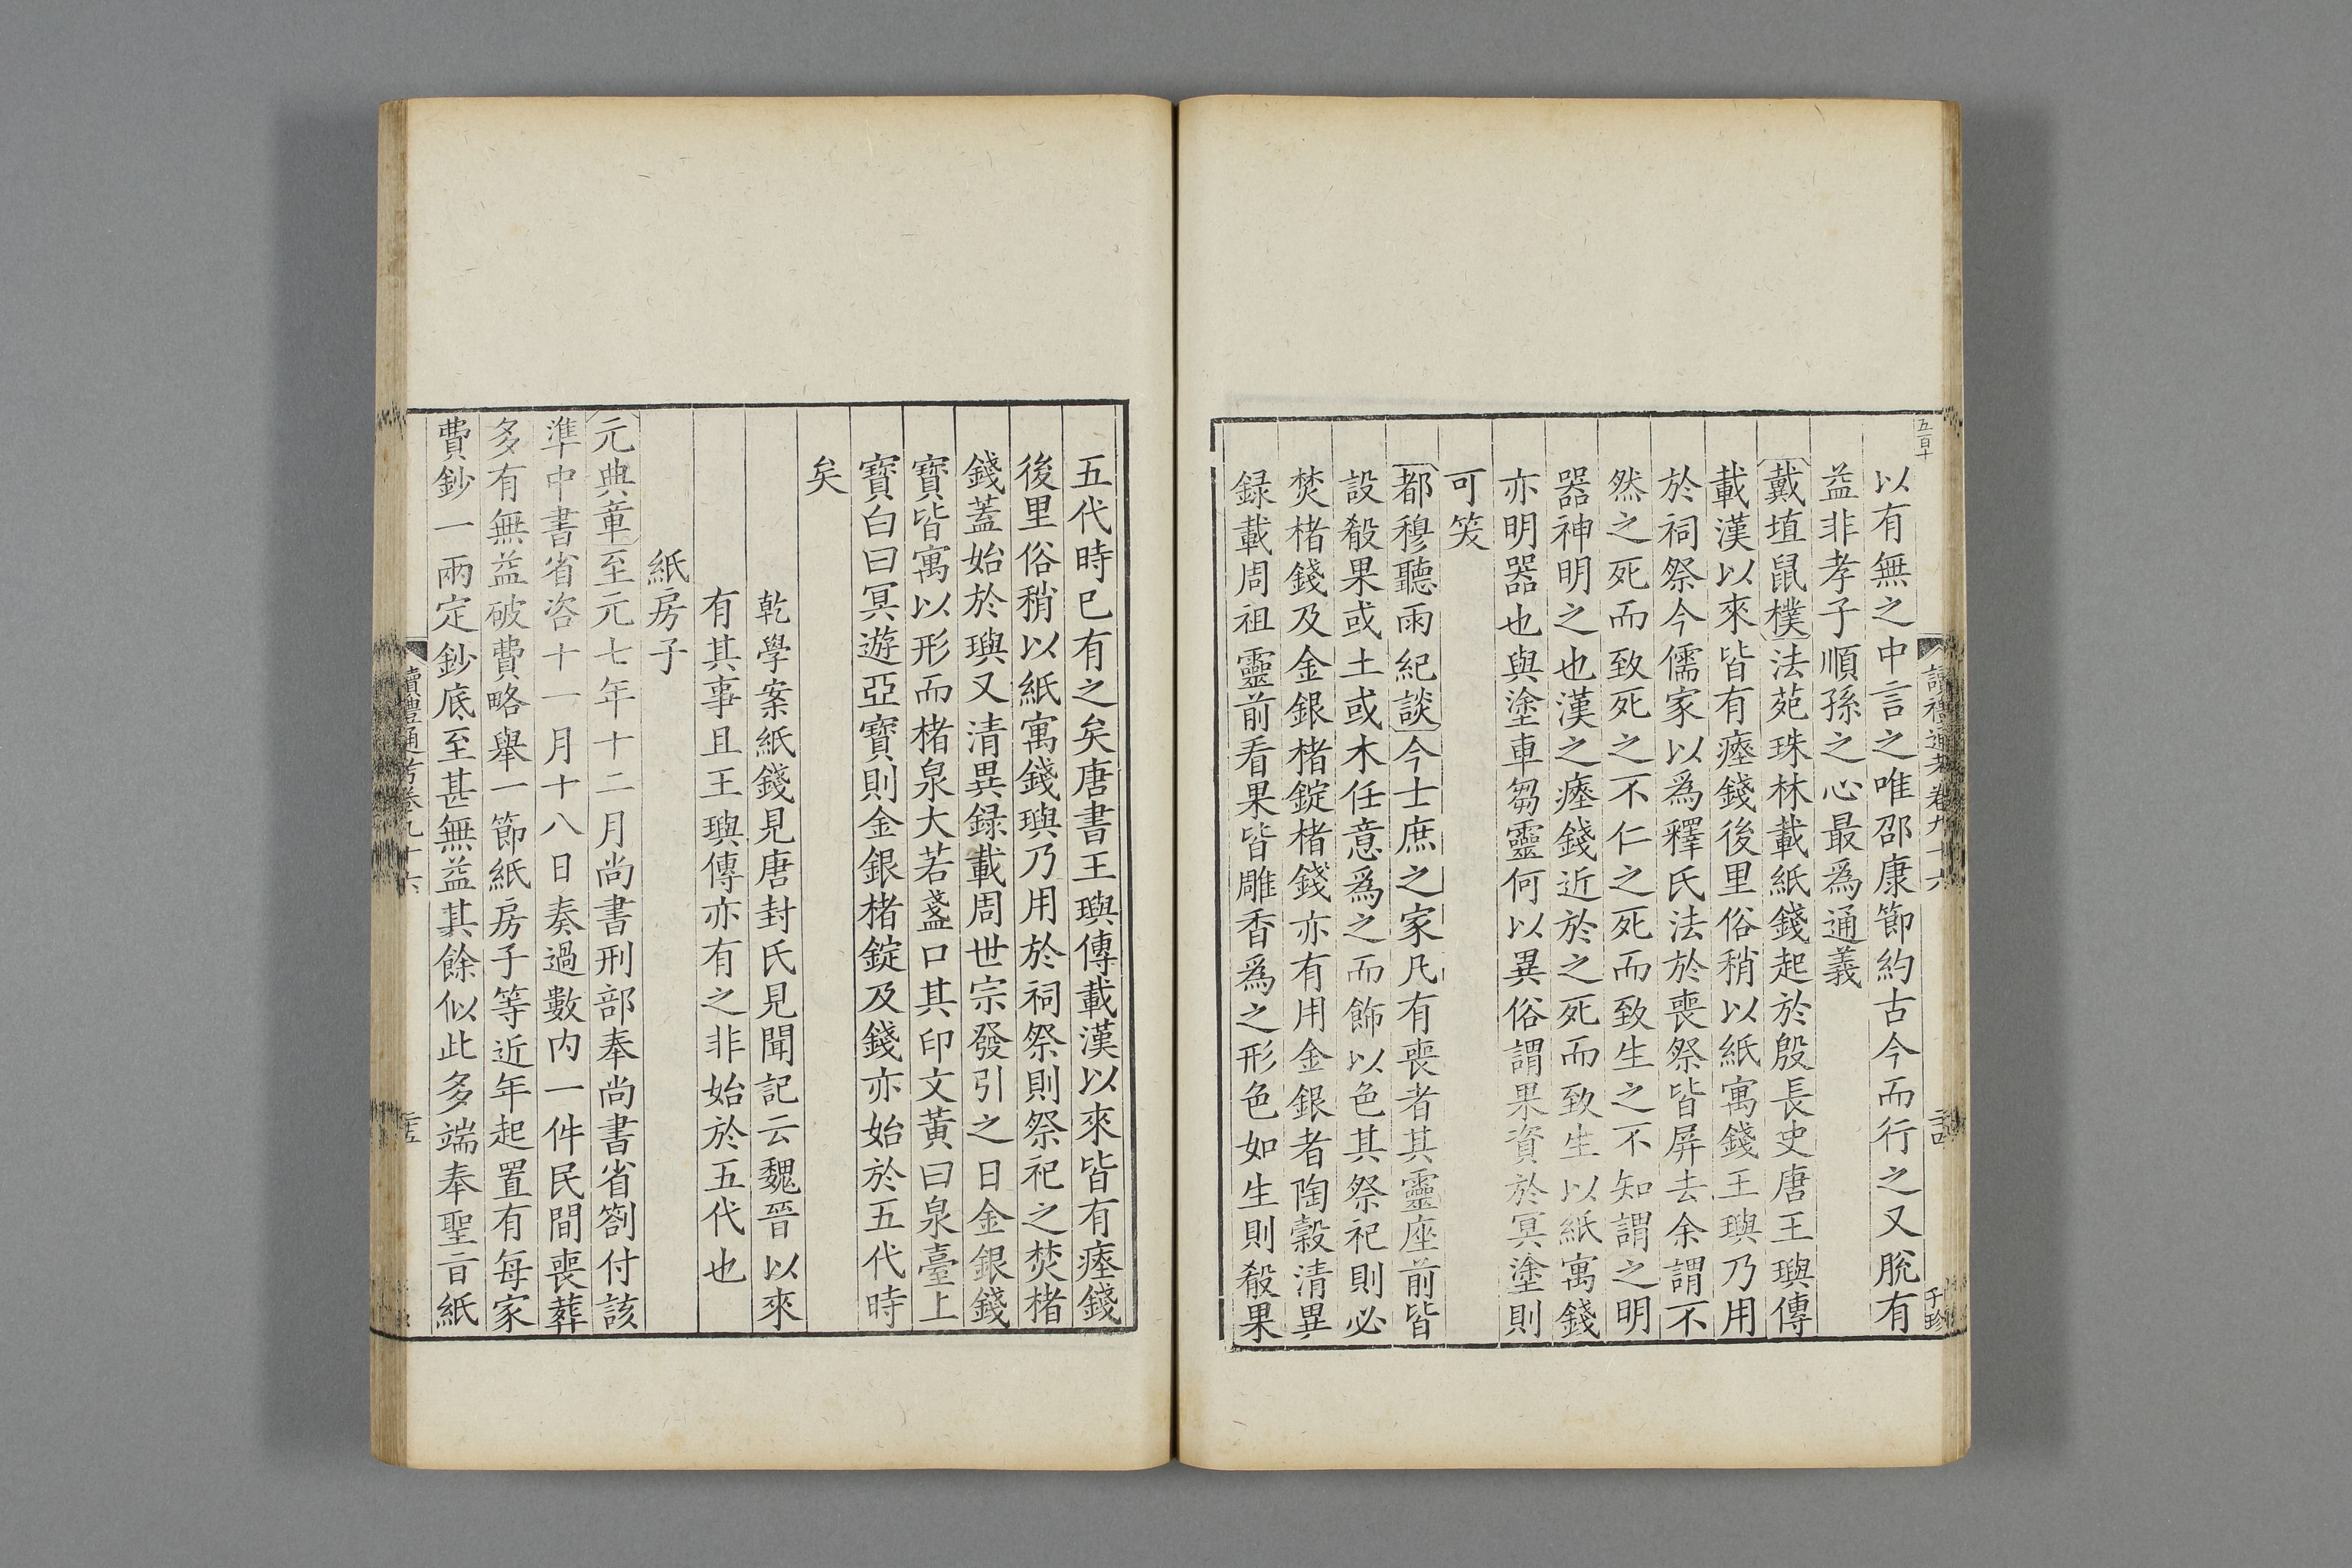 五百十
讀禮通考卷九十六
子珍
以有無之中言之唯邵康節約古今而行之又脫有
益非孝子順孫之心最爲通義
戴埴鼠樸法苑珠林載紙錢起於殷長史唐王璵傳
載漢以來皆有瘞錢後里俗稍以紙寓錢王璵乃用
於祠祭今儒家以爲釋氏法於喪祭皆屏去余謂不
然之死而致死之不仁之死而致生之不知謂之明
器神明之也漢之瘞錢近於之死而致生以紙寓錢
亦明器也與塗車芻靈何以異俗謂果資於冥塗則
可笑
都穆聽雨紀談今士庶之家凡有喪者其靈座前皆
設殽果或土或木任意爲之而飾以色其祭祀則必
焚楮錢及金銀楮錠楮錢亦有用金銀者陶穀清異
録載周祖靈前看果皆雕香爲之形色如生則殽果
五代時已有之矣唐書王璵傳載漢以來皆有瘞錢
後里俗稍以紙寓錢璵乃用於祠祭則祭祀之焚楮
錢蓋始於璵又清異録載周世宗發引之日金銀錢
寳皆寓以形而楮泉大若盞口其印文黃曰泉臺上
寳白曰冥遊亞寳則金銀楮錠及錢亦始於五代時
矣
乾學案紙錢見唐封氏見聞記云魏晉以來
有其事且王璵傳亦有之非始於五代也
紙房子
元典章至元七年十二月尚書刑部奉尚書省劄付該
準中書省咨十一月十八日奏過數内一件民間喪葬
多有無益破費略舉一節紙房子等近年起置有每家
費鈔一兩定鈔底至甚無益其餘似此多端奉聖㫖紙
讀禮通考卷九十六